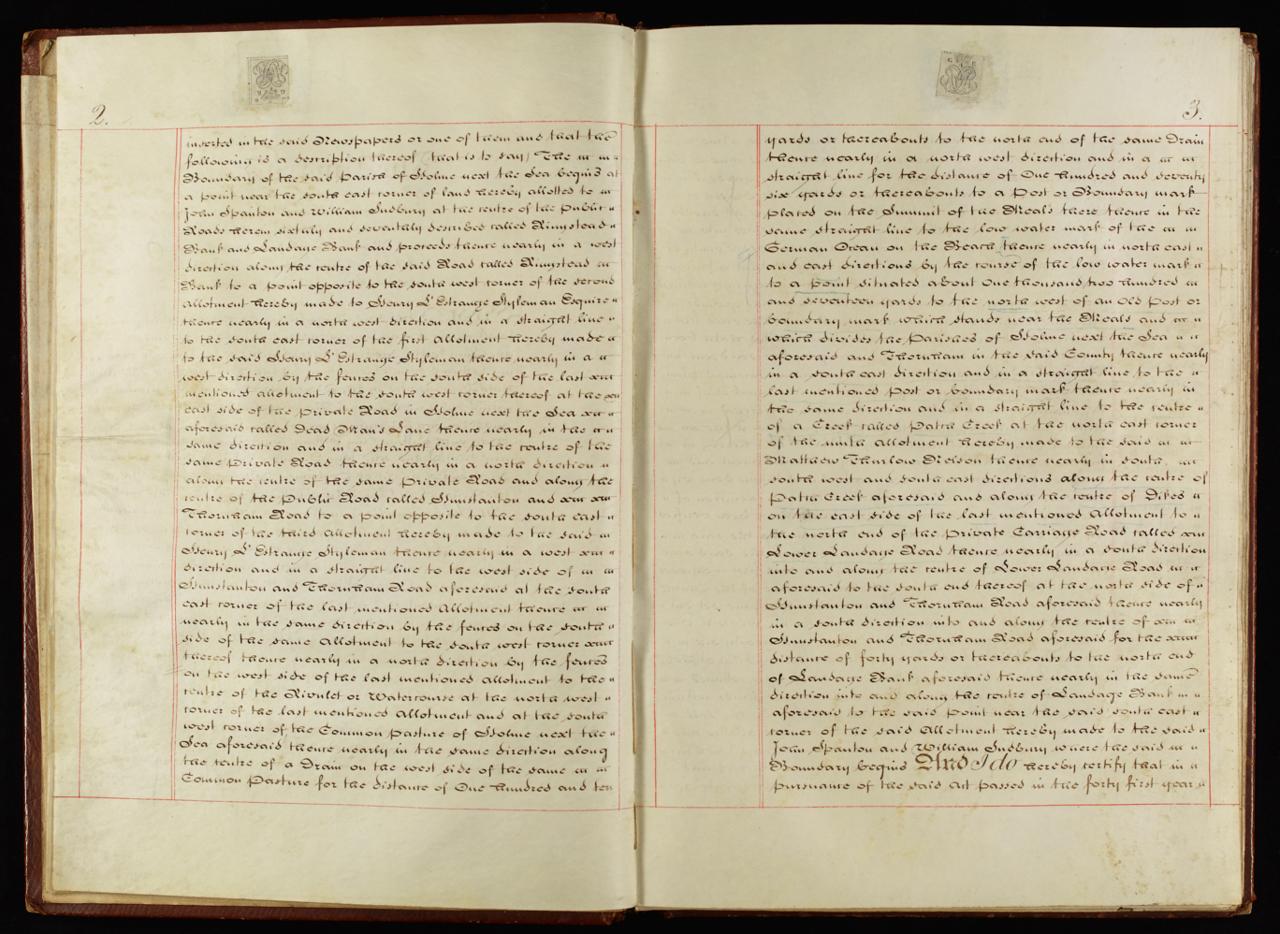 2.
inserted in the said Newspapers or one of them and that the
following is a description thereof (that is to say) The
Boundary of the said Parish of Holme next the Sea begins at
a point near the south east corner of land hereby allotted to
John Spanton and William Sudbury at the centre of the Public
Roads herein sixthly and seventhly described called Ringstead
Bank and Landage Bank and proceeds thence nearly in a west
direction along the centre of the said Road called Ringstead
Bank to a point opposite to the south west corner of the second
Allotment hereby made to Henry L'Estrange Styleman Esquire
thence nearly in a north west direction and in a straight line
to the south east corner of the first Allotment hereby made
to the said Henry L'Estrange Styleman thence nearly in a
west direction by the fences on the south side of the last
mentioned allotment to the south west corner thereof at the
east side of the Private Road in Holme next the Sea
aforesaid called Dead Man's Lane thence nearly in the
same direction and in a straight line to the centre of the
same Private Road thence nearly in a north direction
along the centre of the same Private Road and along the
centre of the Public Road called Hunstanton and
Thornham Road to a point opposite to the south east
corner of the third Allotment hereby made to the said
Henry L'Estrange Styleman thence nearly in a west
direction and in a straight line to the west side of
Hunstanton and Thornham Road aforesaid at the south
east corner of the last mentioned Allotment thence
nearly in the same direction by the fences on the south
side of the same Allotment to the south west corner
thereof thence nearly in a north direction by the fences
on the west side of the last mentioned allotment to the
centre of the Rivulet or Watercourse at the north west
corner of the last mentioned Allotment and at the south
west corner of the Common Pasture of Holme next the
Sea aforesaid thence nearly in the same direction along
the centre of a Drain on the west side of the same
Common Pasture for the distance of One hundred and ten
3.
yards or thereabouts to the north end of the same Drain
thence nearly in a north west direction and in a
straight line for the distance of One hundred and seventy
six yards or thereabouts to a Post or Boundary mark
placed on the Summit of the Meals there thence in the
same straight line to the low water mark of the
German Ocean on the Beach thence nearly in north east
and east directions by the course of the low water mark
to a point situated about One thousand two hundred
and seventeen yards to the north west of an Old Post or
boundary mark which stands near the Meals and
which divides the Parishes of Holme next the Sea
aforesaid and Thornham in the said County thence nearly
in a south east direction and in a straight line to the
last mentioned Post or boundary mark thence nearly in
the same direction and in a straight line to the centre
of a Creek called Patch Creek at the north east corner
of the ninth Allotment hereby made to the said
Matthew Thurlow Nelson thence nearly in south,
south west and south east directions along the centre of
Patch Creek aforesaid and along the centre of Dikes
on the east side of the last mentioned Allotment to
the north end of the Private Carriage Road called
Lower Landage Road thence nearly in a south direction
into and along the centre of Lower Landage Road
aforesaid to the south end thereof at the north side of
Hunstanton and Thornham Road aforesaid thence nearly
in a south direction into and along the centre of
Hunstanton and Thornham Road aforesaid for the
distance of forty yards or thereabouts to the north end
of Landage Bank aforesaid thence nearly in the same
direction into and along the centre of Landage Bank
aforesaid to the said point near the said south east
corner of the said Allotment hereby made to the said
John Spanton and William Sudbury where the said
Boundary begins And I do hereby certify that in
pursuance of the said Act passed in the forty first year